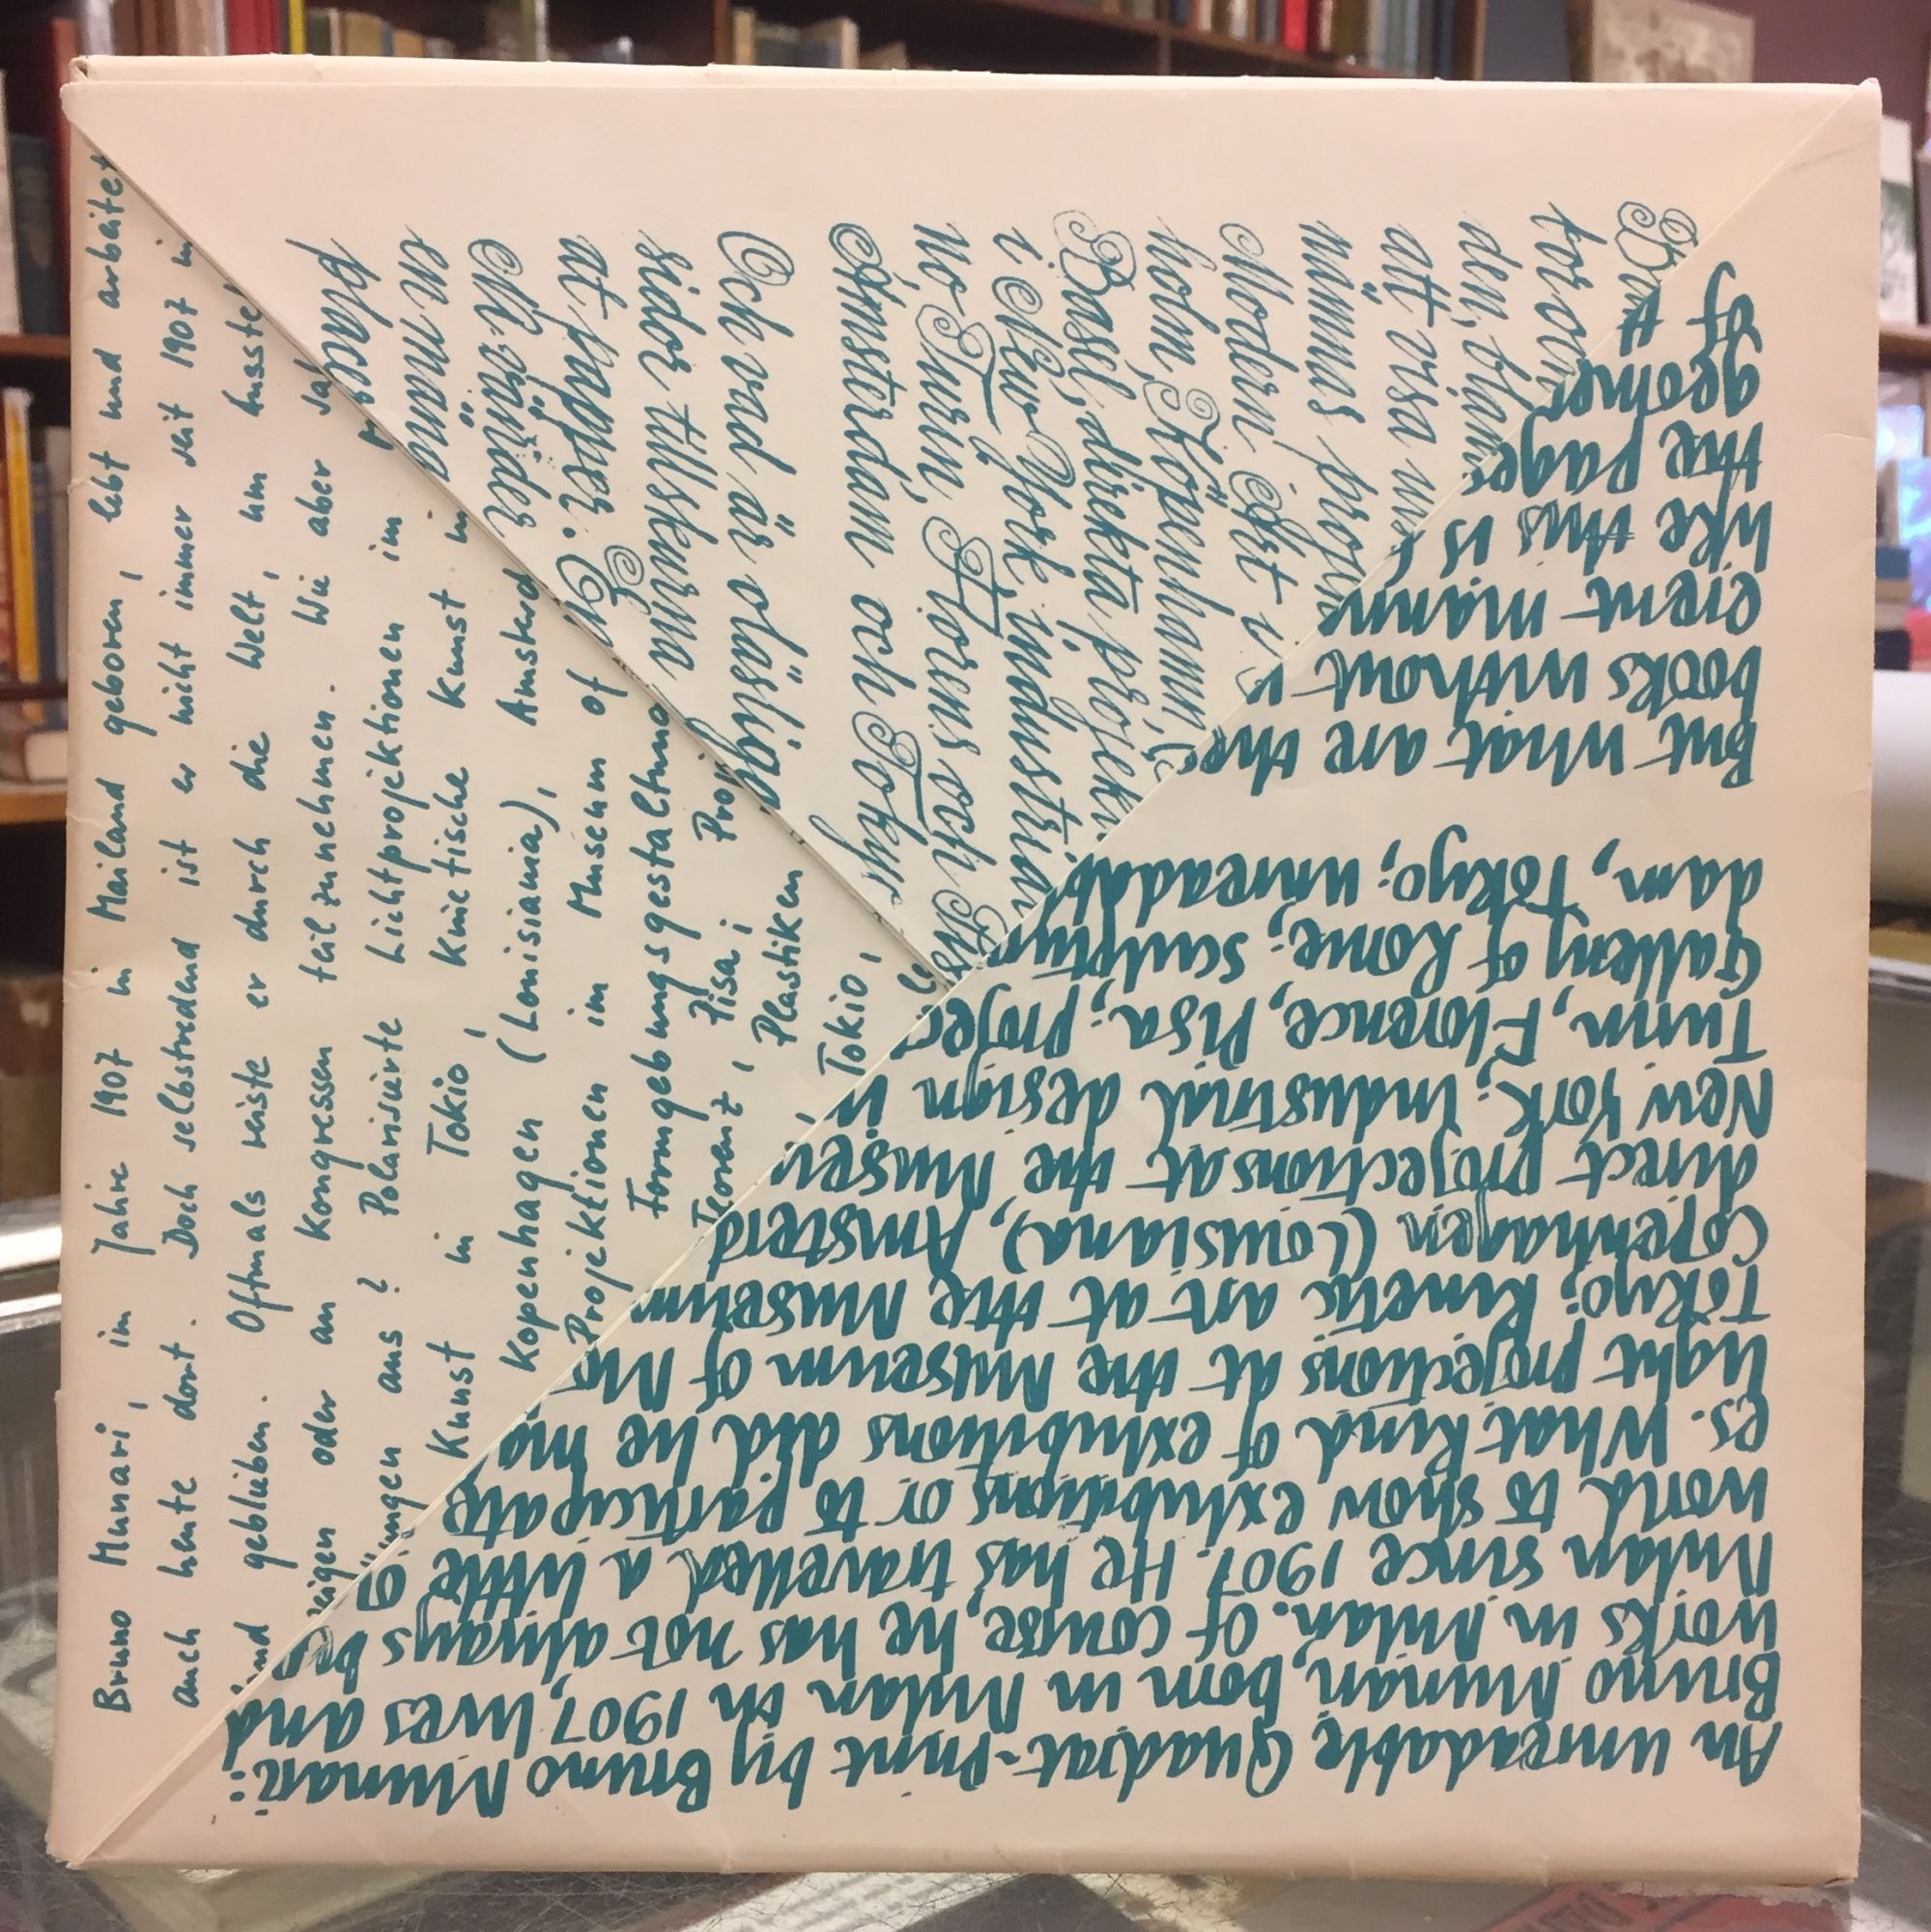 An unreadable Quadrat-Print by Bruno Munari:
Bruno Munari, born in Milan in 1907, lives and
works in Milan. Of course, he has not always bee
Milan since 1907. He has travelled a little o
world to show exhibitions or to participate
es. What kind of exhibitions did he ma
Light projections at the Museum of Mo
Tokyo; kinetic art at the Museum
Copenhagen (Louisiana), Amsterd
direct projections at the Museu
New York; industrial design i
Turin, Florence, Pisa; projec
Gallery of Rome; sculptur
dam, Tokyo; unreadab
But what are thes
books without w
erent mann
like this is
the pages
geomet
of t
Bruno Munari, im Jahre 1907 in Mailand geboren, lebt und arbeitet
auch heute dort. Doch selbstredend ist er nicht immer seit 1907 in
and geblieben. Oftmals reiste er durch die Welt, um Ausstel
zeigen oder an Kongressen teilzunehmen. Wie aber sah
ungen aus? Polarisierte Lichtprojektionen im M
Kunst in Tokio, kinetische Kunst in
Kopenhagen (Louisiana), Amsterd
Projektionen im Museum of
Formgebungsgestaltung
Florenz, Pisa; Proj
, Plastiken
Tokio,
Bru
för
den, blan
att visa
männas
Modern Art i
holm, Köpenhamn, (
Basel, direkta projek
i New York, industri
no Turin, Florens och
Amsterdam och Tokyo
Och vad är oläsliga
sidor tillskurna
at papper. En
Ni vänder
en mäng
placer